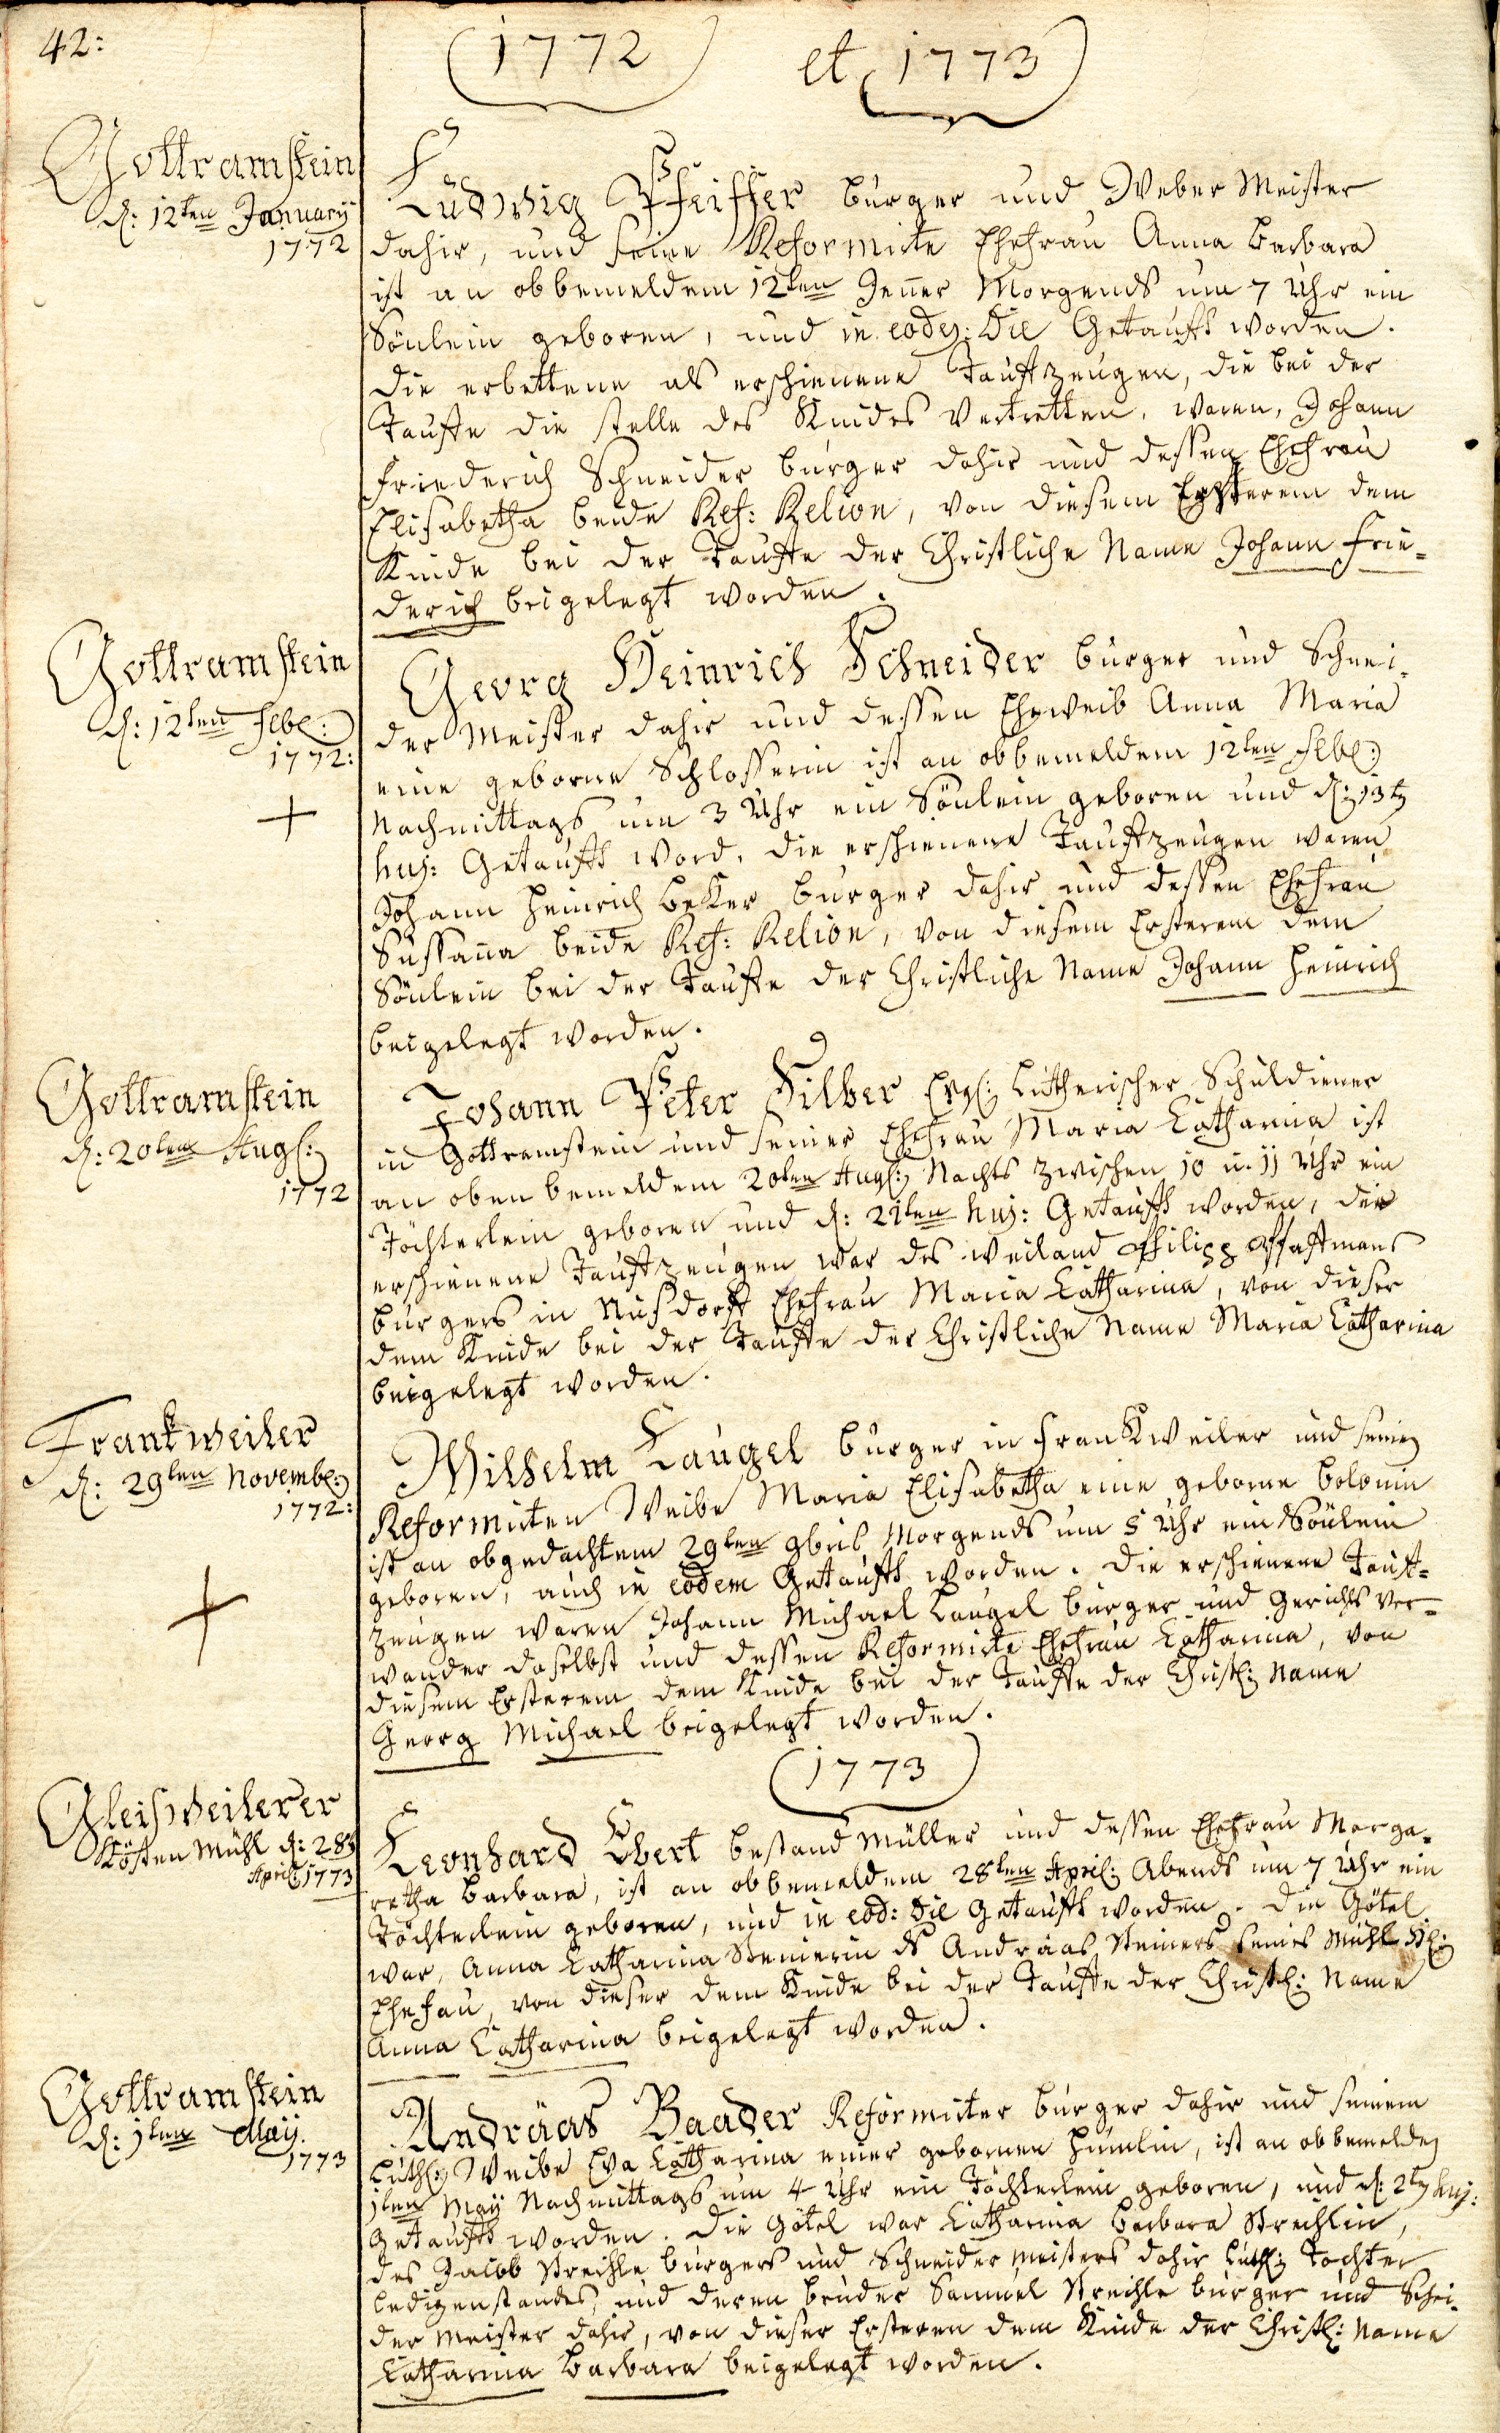 42:
1772 et 1773
Gottramstein
d: 12ten January
1772
Ludwig Pfeiffer burger und Weber Meister
dahir, und seine Reformirte Ehefrau Anna Barbara
ist an obbemeldem 12ten Jener Morgends um 7 Uhr ein
Sönlein geboren, und in eodem: Die Getaufft worden.
die erbettene als erschienene Tauffzeugen, die bei der
Tauffe die stelle des Kindes Vertretten, waren, Johann
Friederich Schneider burger dahir und dessen Ehefrau
Elisabetha beide Ref: Relion, von diesem Ersterem dem
Kinde bei der Tauffe der Christliche Name Johann Frie-
derich beigelegt worden.
Gottramstein
d: 12ten Feb:
1772:
Georg Heinrich Schneider burger und Schnei-
der Meister dahir und dessen Eheweib Anna Maria
eine geborne Schlosserin ist an obbemeldem 12ten Feb:
Nachmittags um 3 Uhr ein Sönlein geboren und d: 13t
huj: Getaufft word, die erschienene Tauffzeugen waren
Johann Heinrich Beker burger dahir und dessen Ehefrau
Sussana beide Ref: Relion, von diesem Ersterem dem
Sönlein bei der Tauffe der Christliche Name Johann Heinrich
beigelegt worden.
Gottramstein
d: 20ten Aug:
1772
Johann Peter Silber Evg: Lutherischer Schuldiener
in Gottramstein und seiner Ehefrau Maria Catharina ist
an oben bemeldem 20ten Aug: Nachts zwischen 10 u. 11 Uhr ein
Töchterlein geboren und d: 21ten huj: Getaufft worden, die
erschienene Tauffzeugen war des weiland Philipp Pfaffmans
burgers in Nusdorff Ehefrau Maria Catharina, von dieser
dem Kinde bei der Tauffe der Christliche Name Maria Catharina
beigelegt worden.
Frankweiler
d: 29ten Novemb:
1772:
Wilhelm Laugel burger in Frankweiler und seinen
Reformirten Weibe Maria Elisabetha eine geborne Bolonin
ist an obgedachtem 29ten 9bris Morgends um 5 Uhr ein Sönlein
geboren, auch in eodem Getaufft worden. die erschienene Tauff-
zeugen waren Johann Michael Laugel burger und Gerichts Ver-
wander daselbst und dessen Reformirte Ehefrau Catharina, von
diesem Ersterem dem Kinde bei der Tauffe der Christ: Name
Georg Michael beigelegt worden.
1773
Gleisweilerer
Kösten Mühl d: 28t
April 1773
Leonhard Ebert bestand Müller und dessen Ehefrau Marga-
retha Barbara, ist an obbemeldem 28ten April: Abends um 7 Uhr ein
Töchterlein geboren, und in eod: Die Getaufft worden. Die Götel
war, Anna Catharina Steinerin des Andräas Steiners seines Mühl
Ehefau, von dieser dem Kinde bei der Tauffe der Christl: Name
Anna Catharina beigelegt worden.
Gottramstein
d: 1ten May.
1773
Andräas Baader Reformirter burger dahir und seinem
Luth: Weibe Eva Catharina einer gebornen Humlin, ist an obbemelden
1ten May Nachmittags um 4 Uhr ein Töchterlein geboren, und d: 2t huj:
Getaufft worden. Die Götel war Catharina Barbara Strechlin,
des Jacob Strechle burgers und Schneider meisters dahir Luth: Tochter
ledigenstandes, und deren bruder Samuel Strechle burger und Schei-
der meister dahir, von dieser Ersteren dem Kinde der Christ: Name
Catharina Barbara beigelegt worden.